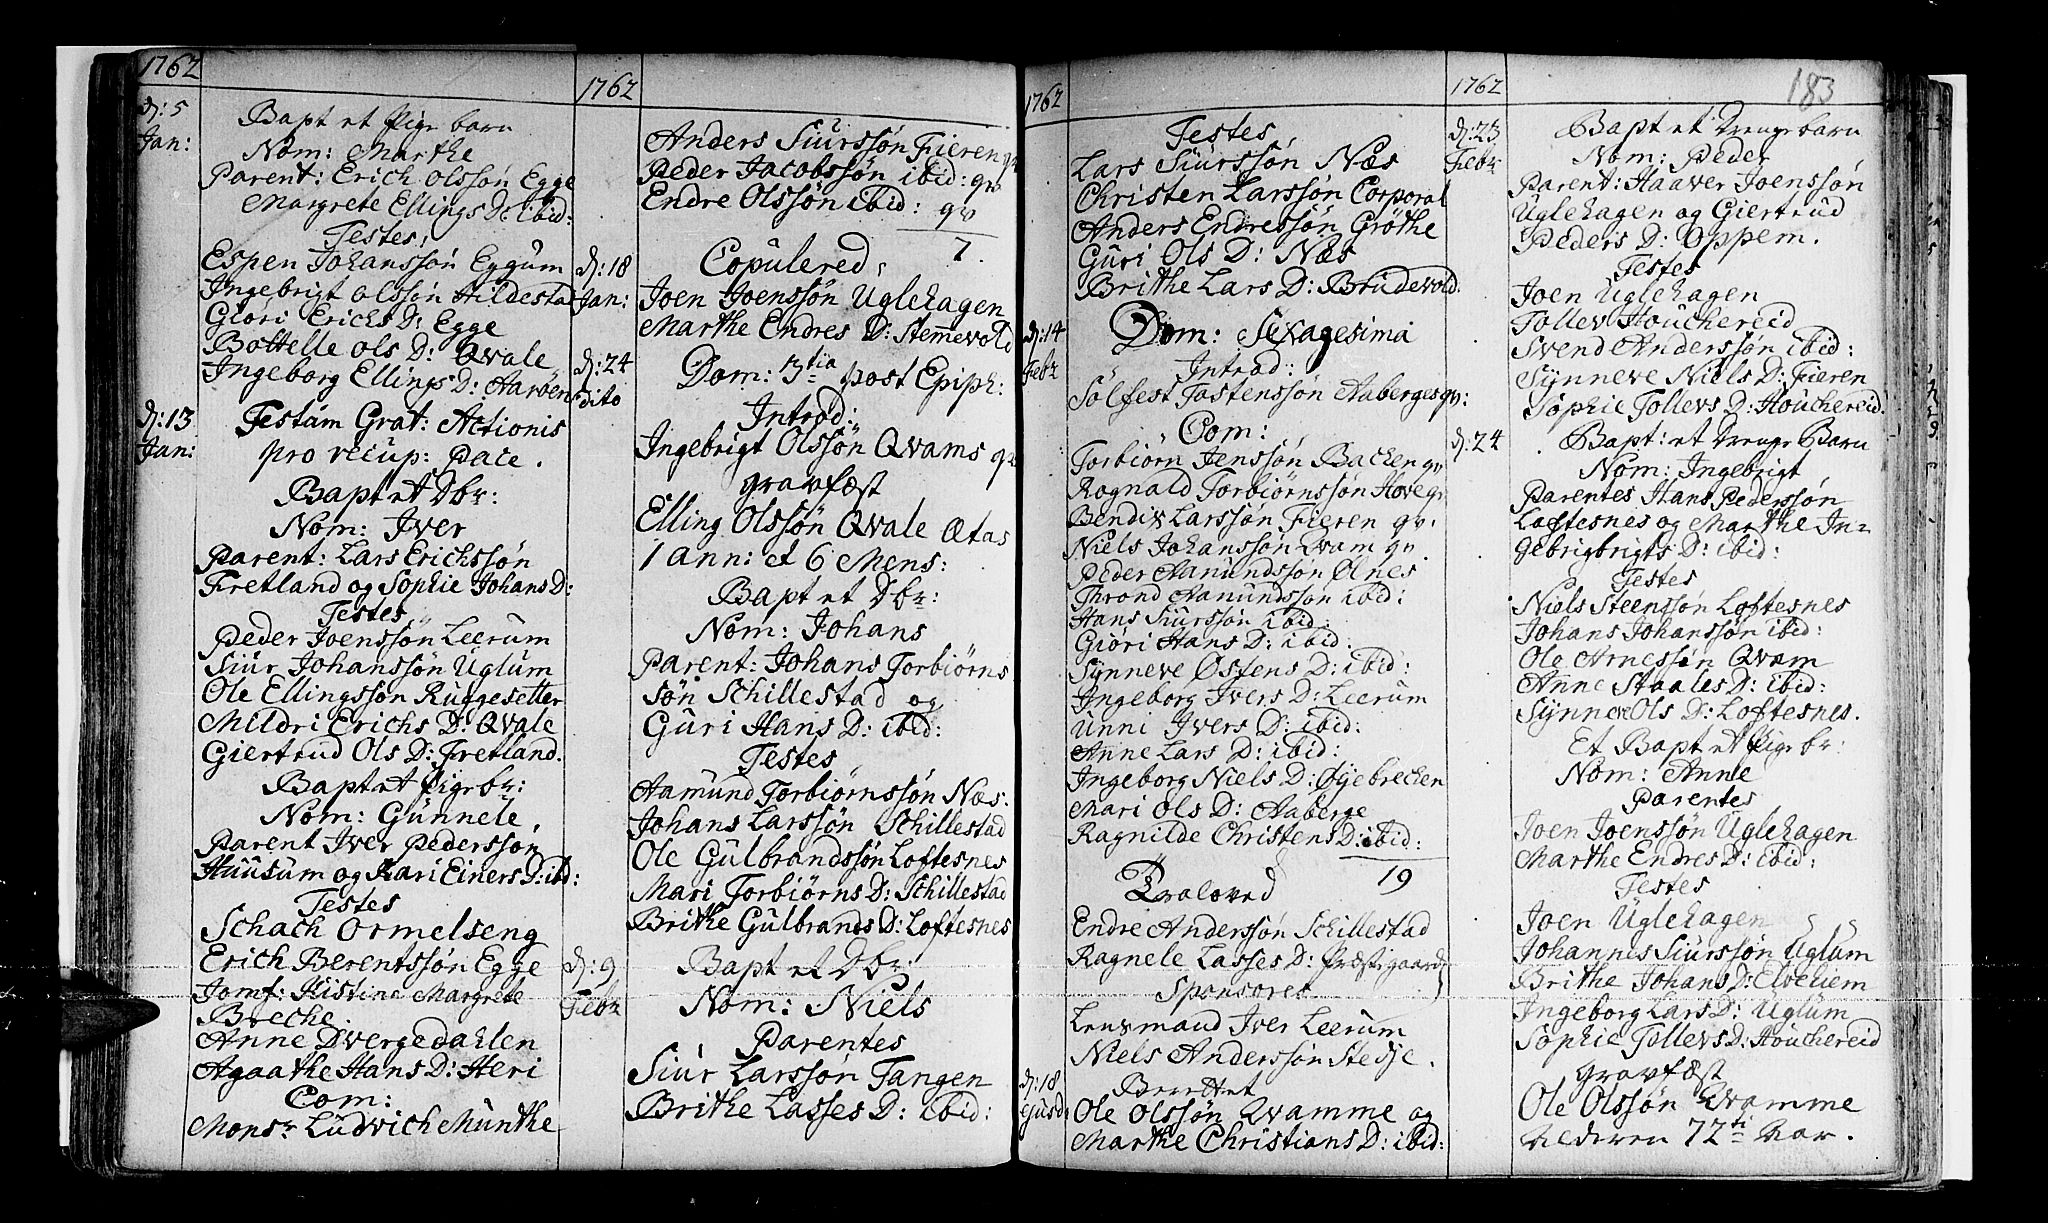 1762
d: 5
Jan:
Bapt et Pige barn
Nom: Marthe
Parent: Erich Olssøn Egge
Margrete Ellings D: ibid:
Testes,
Espen Johanssøn Eggum
Ingebrigt Olssøn Hildestad
Giøri Erichs D: Egge
Bottelle Ols D: Qvale
Ingeborg Ellings D: Aarøen
d: 13
Jan:
Festum Grat: Actionis
pro recup: Pace.
Bapt et Dbr:
Nom: Iver
Parent: Lars Erichssøn
Fretland og Sophie Johans D:
Testes
Peder Joenssøn Leerum
Siur Johanssøn Uglum
Ole Ellingssøn Ruggesetter
Mildri Erichs D: Qvale
Giertrud Ols D: Fretland.
Bapt et Pigebr:
Nom: Gunnele,
Parent Iver Pederssøn,
Huusum og Kari Einers D: ibd:
Testes
Schach Ormelseng
Erich Berentssøn Egge
Jomf: Kistine Margrete
Breche.
Anne Dvergedahlen
Agaathe Hans D: Heri
Com:
Monsr Ludvich Munthe
1762
Anders Siurssøn Fieren qv
Peder Jacobssøn ibid: qv
Endre Olssøn ibid: qv
7.
d: 18
Jan:
Copulered,
Joen Joenssøn Uglehagen
Marthe Endres D: Stemmevold
d: 24
dito
Dom: 3tia post Epiph:
Introd:
Ingebrigt Olssøn Qvams qv
gravfæst
Elling Olssøn Qvale Ætas
1 ann: et 6 Mens:
Bapt et Dbr:
Nom: Johans
Parent: Johans Torbiørns
søn Schillestad og
Guri Hans D: ibid:
Testes
Aamund Torbiørnssøn Næs.
Johans Larssøn Schillestad
Ole Gulbrandssøn Loftesnes
Mari Torbiørns D: Schillestad
Brithe Gulbrands D: Loftesnes
d: 9
Febr
Bapt et Dbr
Nom: Niels
Parentes
Siur Larssøn Tangen
Brithe Lasses D: ibid:
1762
Testes
Lars Siurssøn Næs
Christen Larssøn Corporal
Anders Endressøn Grøthe
Guri Ols D: Næs
Brithe Lars D: Brudevold.
d: 14
Febr
Dom: Sexagesima
Introd:
Sølfest Tostenssøn Aaberges qv:
Com:
Torbiørn Jenssøn Bachen qv
Rognald Torbiørnssøn Hove qv
Bendix Larssøn Fieren qv.
Niels Johanssøn Qvam qv
Peder Aamundssøn Ølnes
Thrond Aamundssøn ibid:
Hans Siurssøn ibid:
Giøri Hans D: ibid:
Synneve Østens D: ibid:
Ingeborg Ivers D: Leerum
Unni Ivers D: ibid:
Anne Lars D: ibid:
Ingeborg Niels D: Øyebrechen
Mari Ols D: Aaberge
Ragnilde Christens D: ibid:
19
Traloved
Endre Anderssøn Schillestad
Ragnele Lasses D: Præstegaard
Sponsores
Lensmand Iver Leerum
Niels Anderssøn Stedje.
d: 18
Ole Olssøn Qvamme og
Marthe Christians D: ibid:
1762
183
d: 23
Febr
Bapt et Drengebarn
Nom: Peder
Parent: Haaver Joenssøn
Uglehagen og Giertrud
Peders D: Oppem.
Testes
Joen Uglehagen
Tollev Houchereid
Svend Anderssøn ibid:
Synneve Niels D: Fieren
Sophie Tollevs D: Houchereid.
d: 24
Bapt: et Drenge Barn
Nom: Ingebrigt
Parentes Hans Pederssøn
Loftesnes og Marthe In=
gebrigbrigts D: ibid:
Testes
Niels Steenssøn Loftesnes
Johans Johanssøn ibid:
Ole Arnessøn Qvam
Anne Staales D: ibid:
Synneve Ols D: Loftesnes.
Et Bapt et Pige br:
Nom: Anne
Parentes
Joen Joenssøn Uglehagen
Marthe Endres D: ibid:
Testes
Joen Uglehagen
Johannes Siurssøn Uglum
Brithe Johans D: Elvehiem
Ingeborg Lars D: Uglum
Sophie Tollevs D: Houchereid
gravfæst
Ole Olssøn Qvamme
Alderen 72ti Aar.